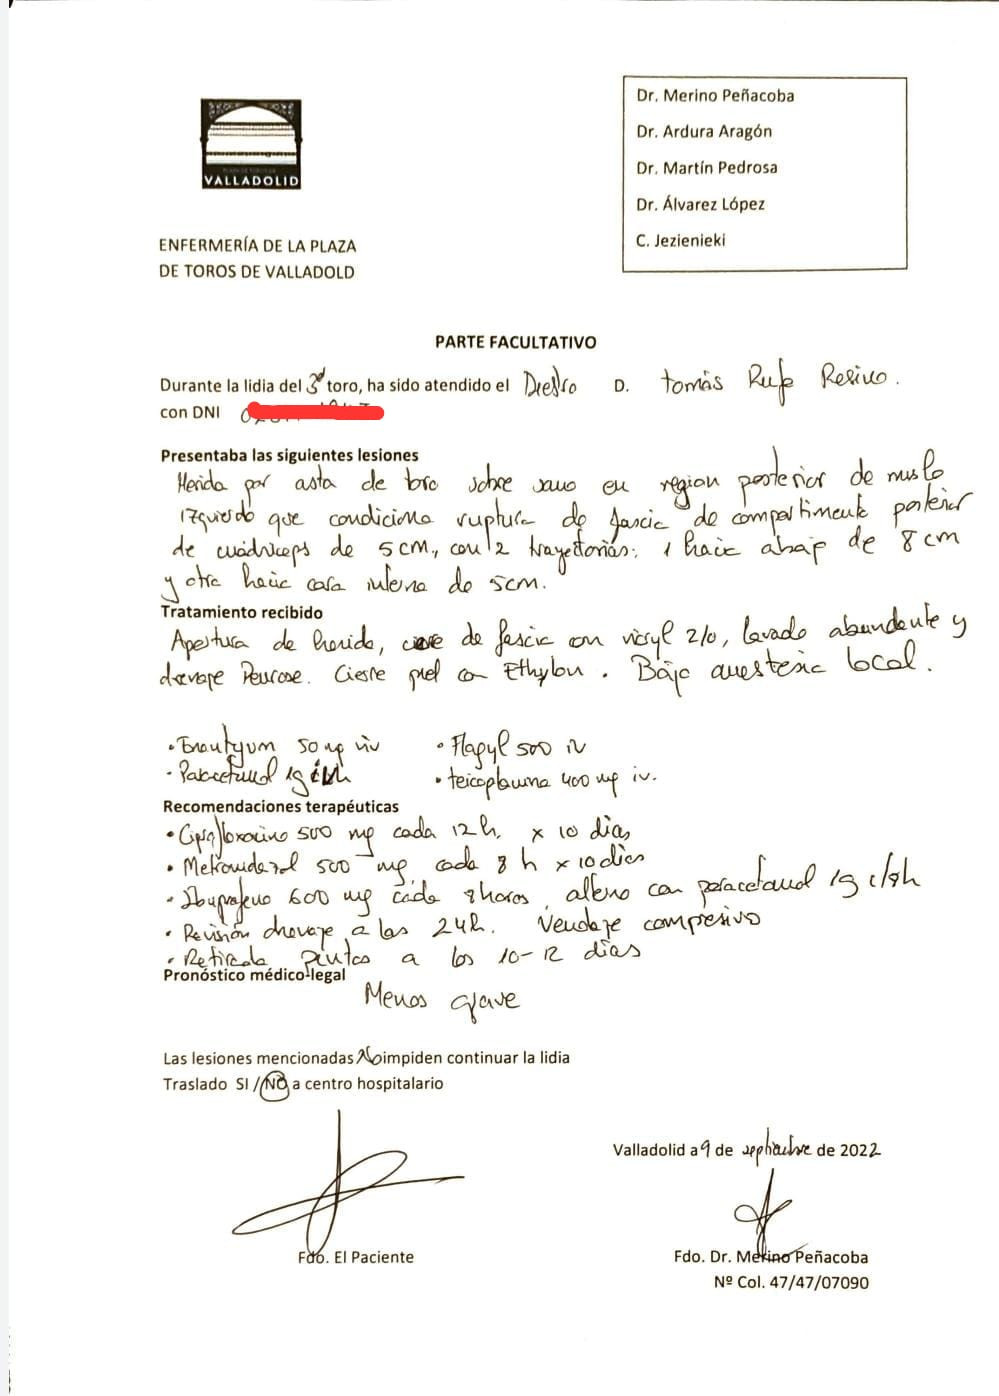 Dr. Merino Peñacoba
Dr. Ardura Aragón
Dr. Martín Pedrosa
Dr. Álvarez López
C. Jezienieki
VALLADOLID
ENFERMERÍA DE LA PLAZA
DE TOROS DE VALLADOLD
PARTE FACULTATIVO
Durante la lidia del 3º toro, ha sido atendido el Diestro D. Tomás Rufo Resino.
con DNI
Presentaba las siguientes lesiones
Herida por asta de toro sobre sano en region posterior de muslo
izquierdo que condiciona ruptura de fascia de compartimento posterior
de cuádriceps de 5 cm., con 2 trayectorias: 1 hacia abajo de 8 cm
y otra hacia cara interna de 5 cm.
Tratamiento recibido
Apertura de herida, cierre de fascia con vicryl 2/0, lavado abundante y
drenaje Penrose. Cierre piel con Ethylon. Bajo anestesia local.
• Enantyum 50 mg iv • Flagyl 500 iv
• Paracetamol 1g • teicoplanina 400 mg iv.
Recomendaciones terapéuticas
• Ciprofloxacino 500 mg cada 12h, x 10 días
• Metronidazol 500 mg, cada 8 h x 10 días
• Ibuprofeno 600 mg cada 8 horas, alterno con paracetamol 1g c/8h
• Revisión drenaje a las 24h. Vendaje compresivo
• Retirada puntos a los 10-12 días
Pronóstico médico-legal
Menos grave
Las lesiones mencionadas No impiden continuar la lidia
Traslado SI / NO a centro hospitalario
Valladolid a 9 de septiembre de 2022
Fdo. El Paciente
Fdo. Dr. Merino Peñacoba
Nº Col. 47/47/07090